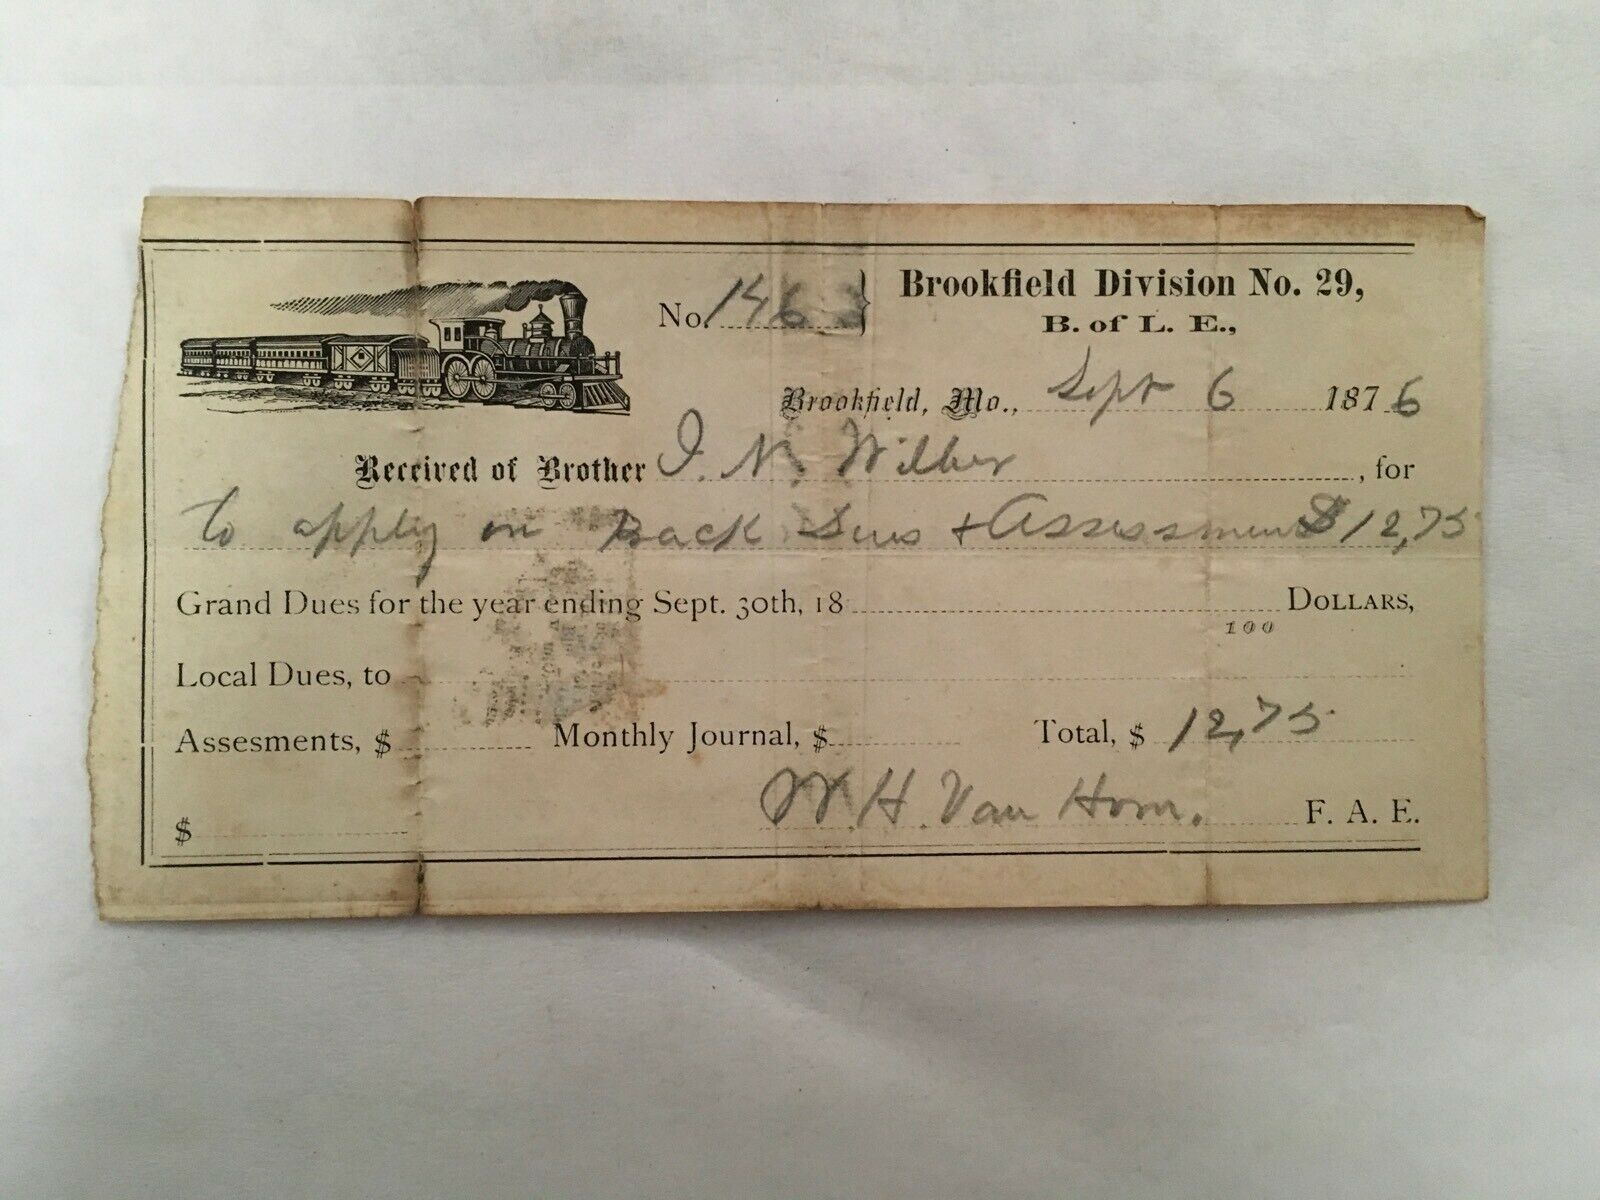 No. 1463 } Brookfield Division No. 29,
B. of L. E.,
Brookfield, Mo., Sept 6 1876
Received of Brother I. N. Wilber, for
to apply on Back Dues + Assessment $12,75
Grand Dues for the year ending Sept. 30th, 18 DOLLARS,
100
Local Dues, to
Assesments, $ Monthly Journal, $ Total, $ 12,75
W. H. Van Horn. F. A. E.
$